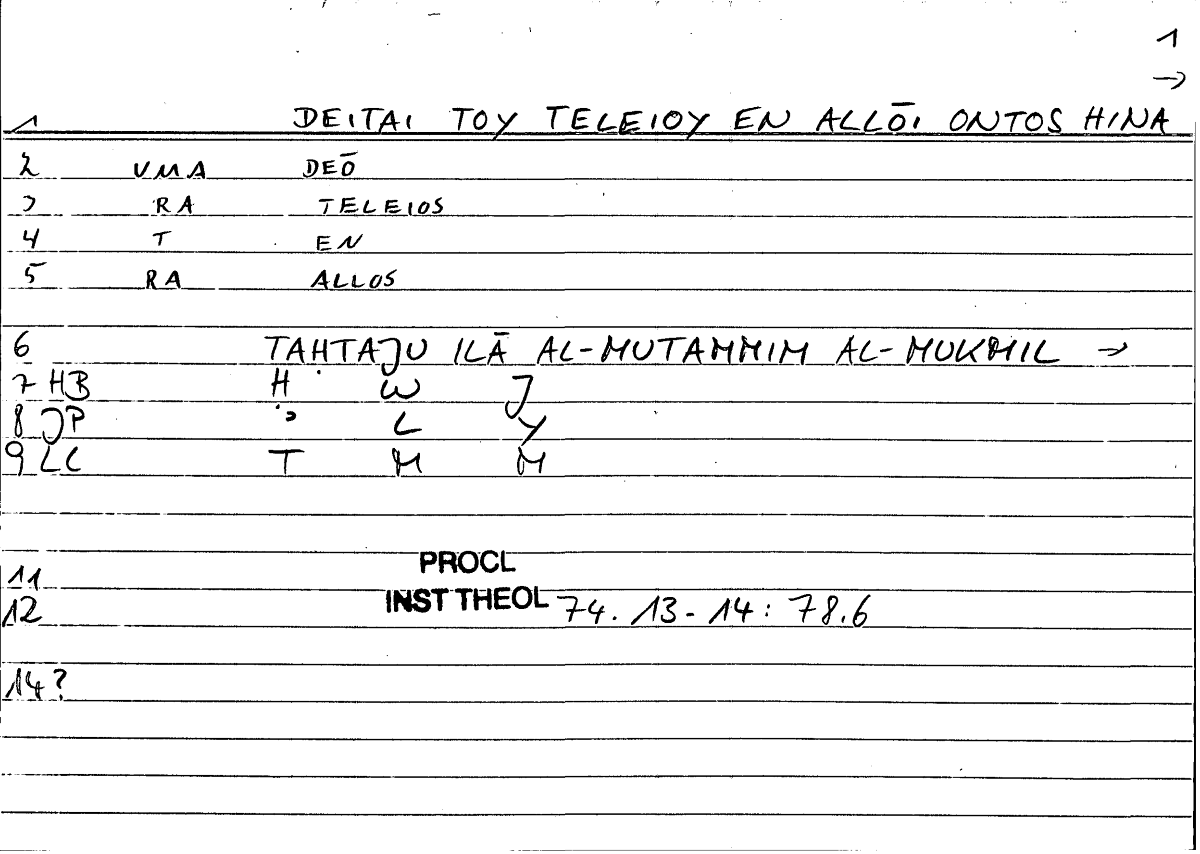 1
→
1 DEITAI TOY TELEIOY EN ALLŌI ONTOS HINA
2 VMA DEŌ
3 RA TELEIOS
4 T EN
5 RA ALLOS
6 TAḤTAJU ILĀ AL-MUTAMMIM AL-MUKMIL →
7 HB Ḥ W J
8 JP ʾ L Y
9 LC T M M
11
12 PROCL
INST THEOL 74. 13-14: 78.6
14?